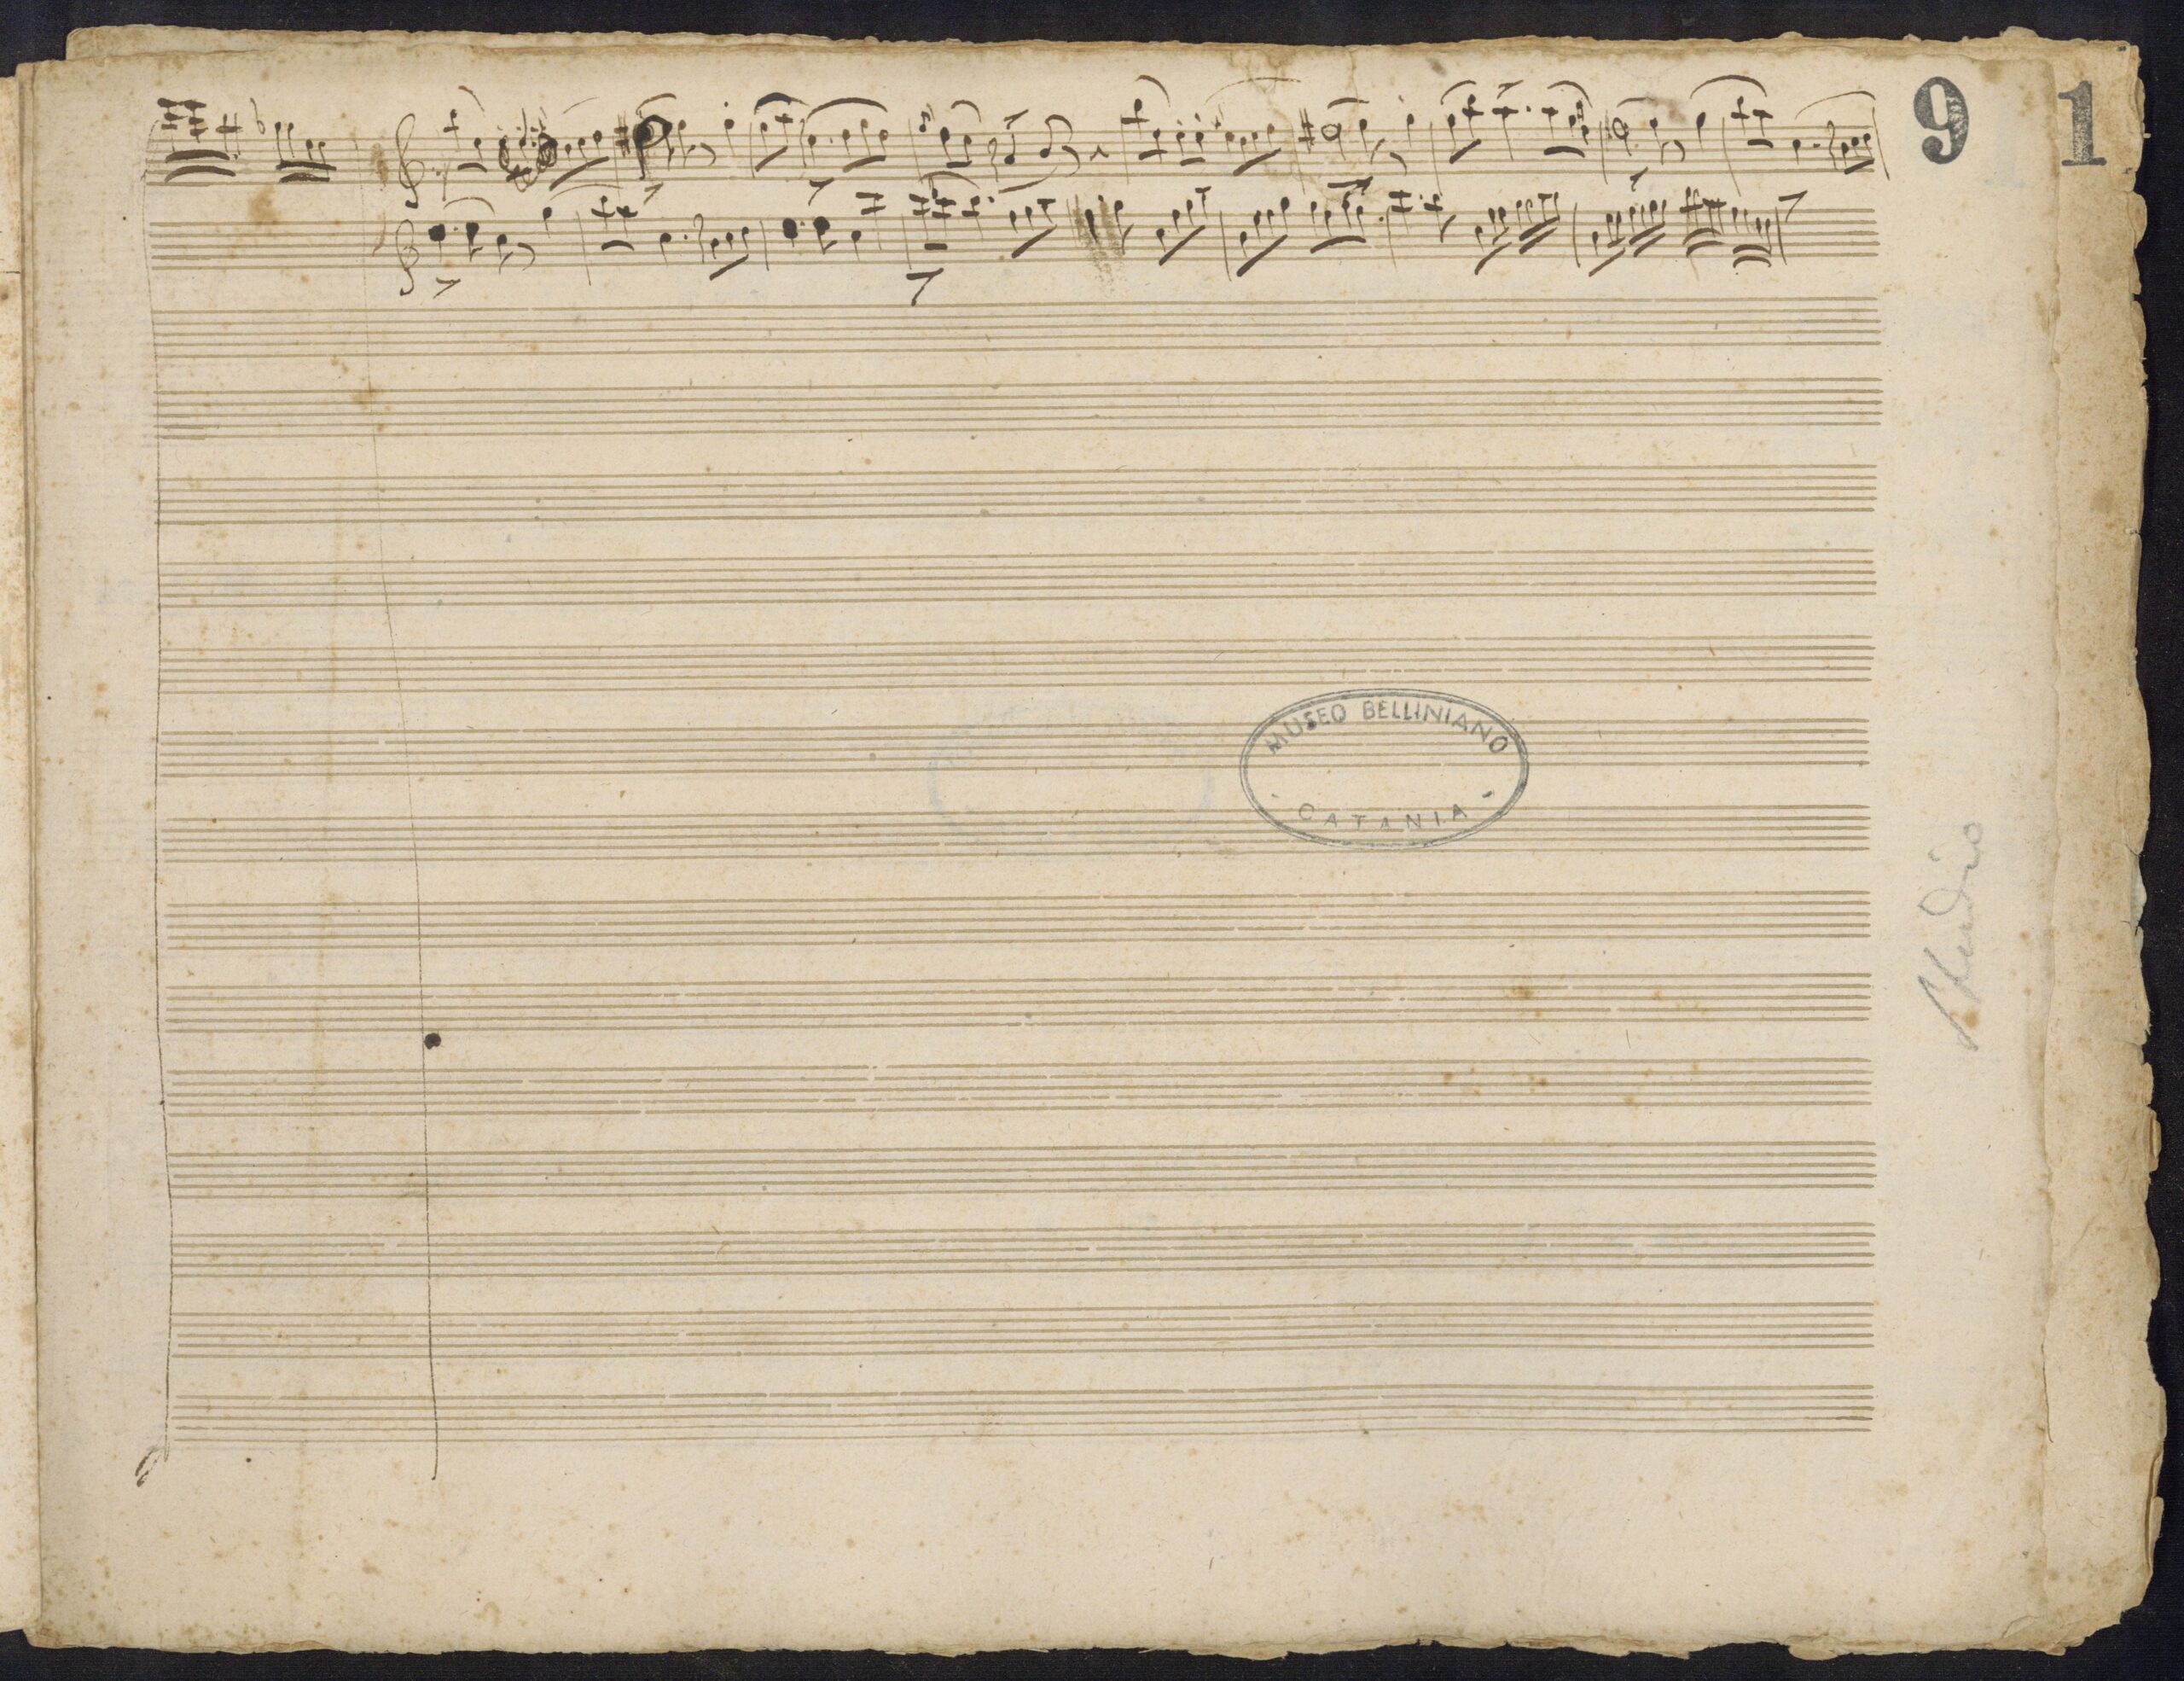 9 1
MUSEO BELLINIANO
CATANIA
Studio